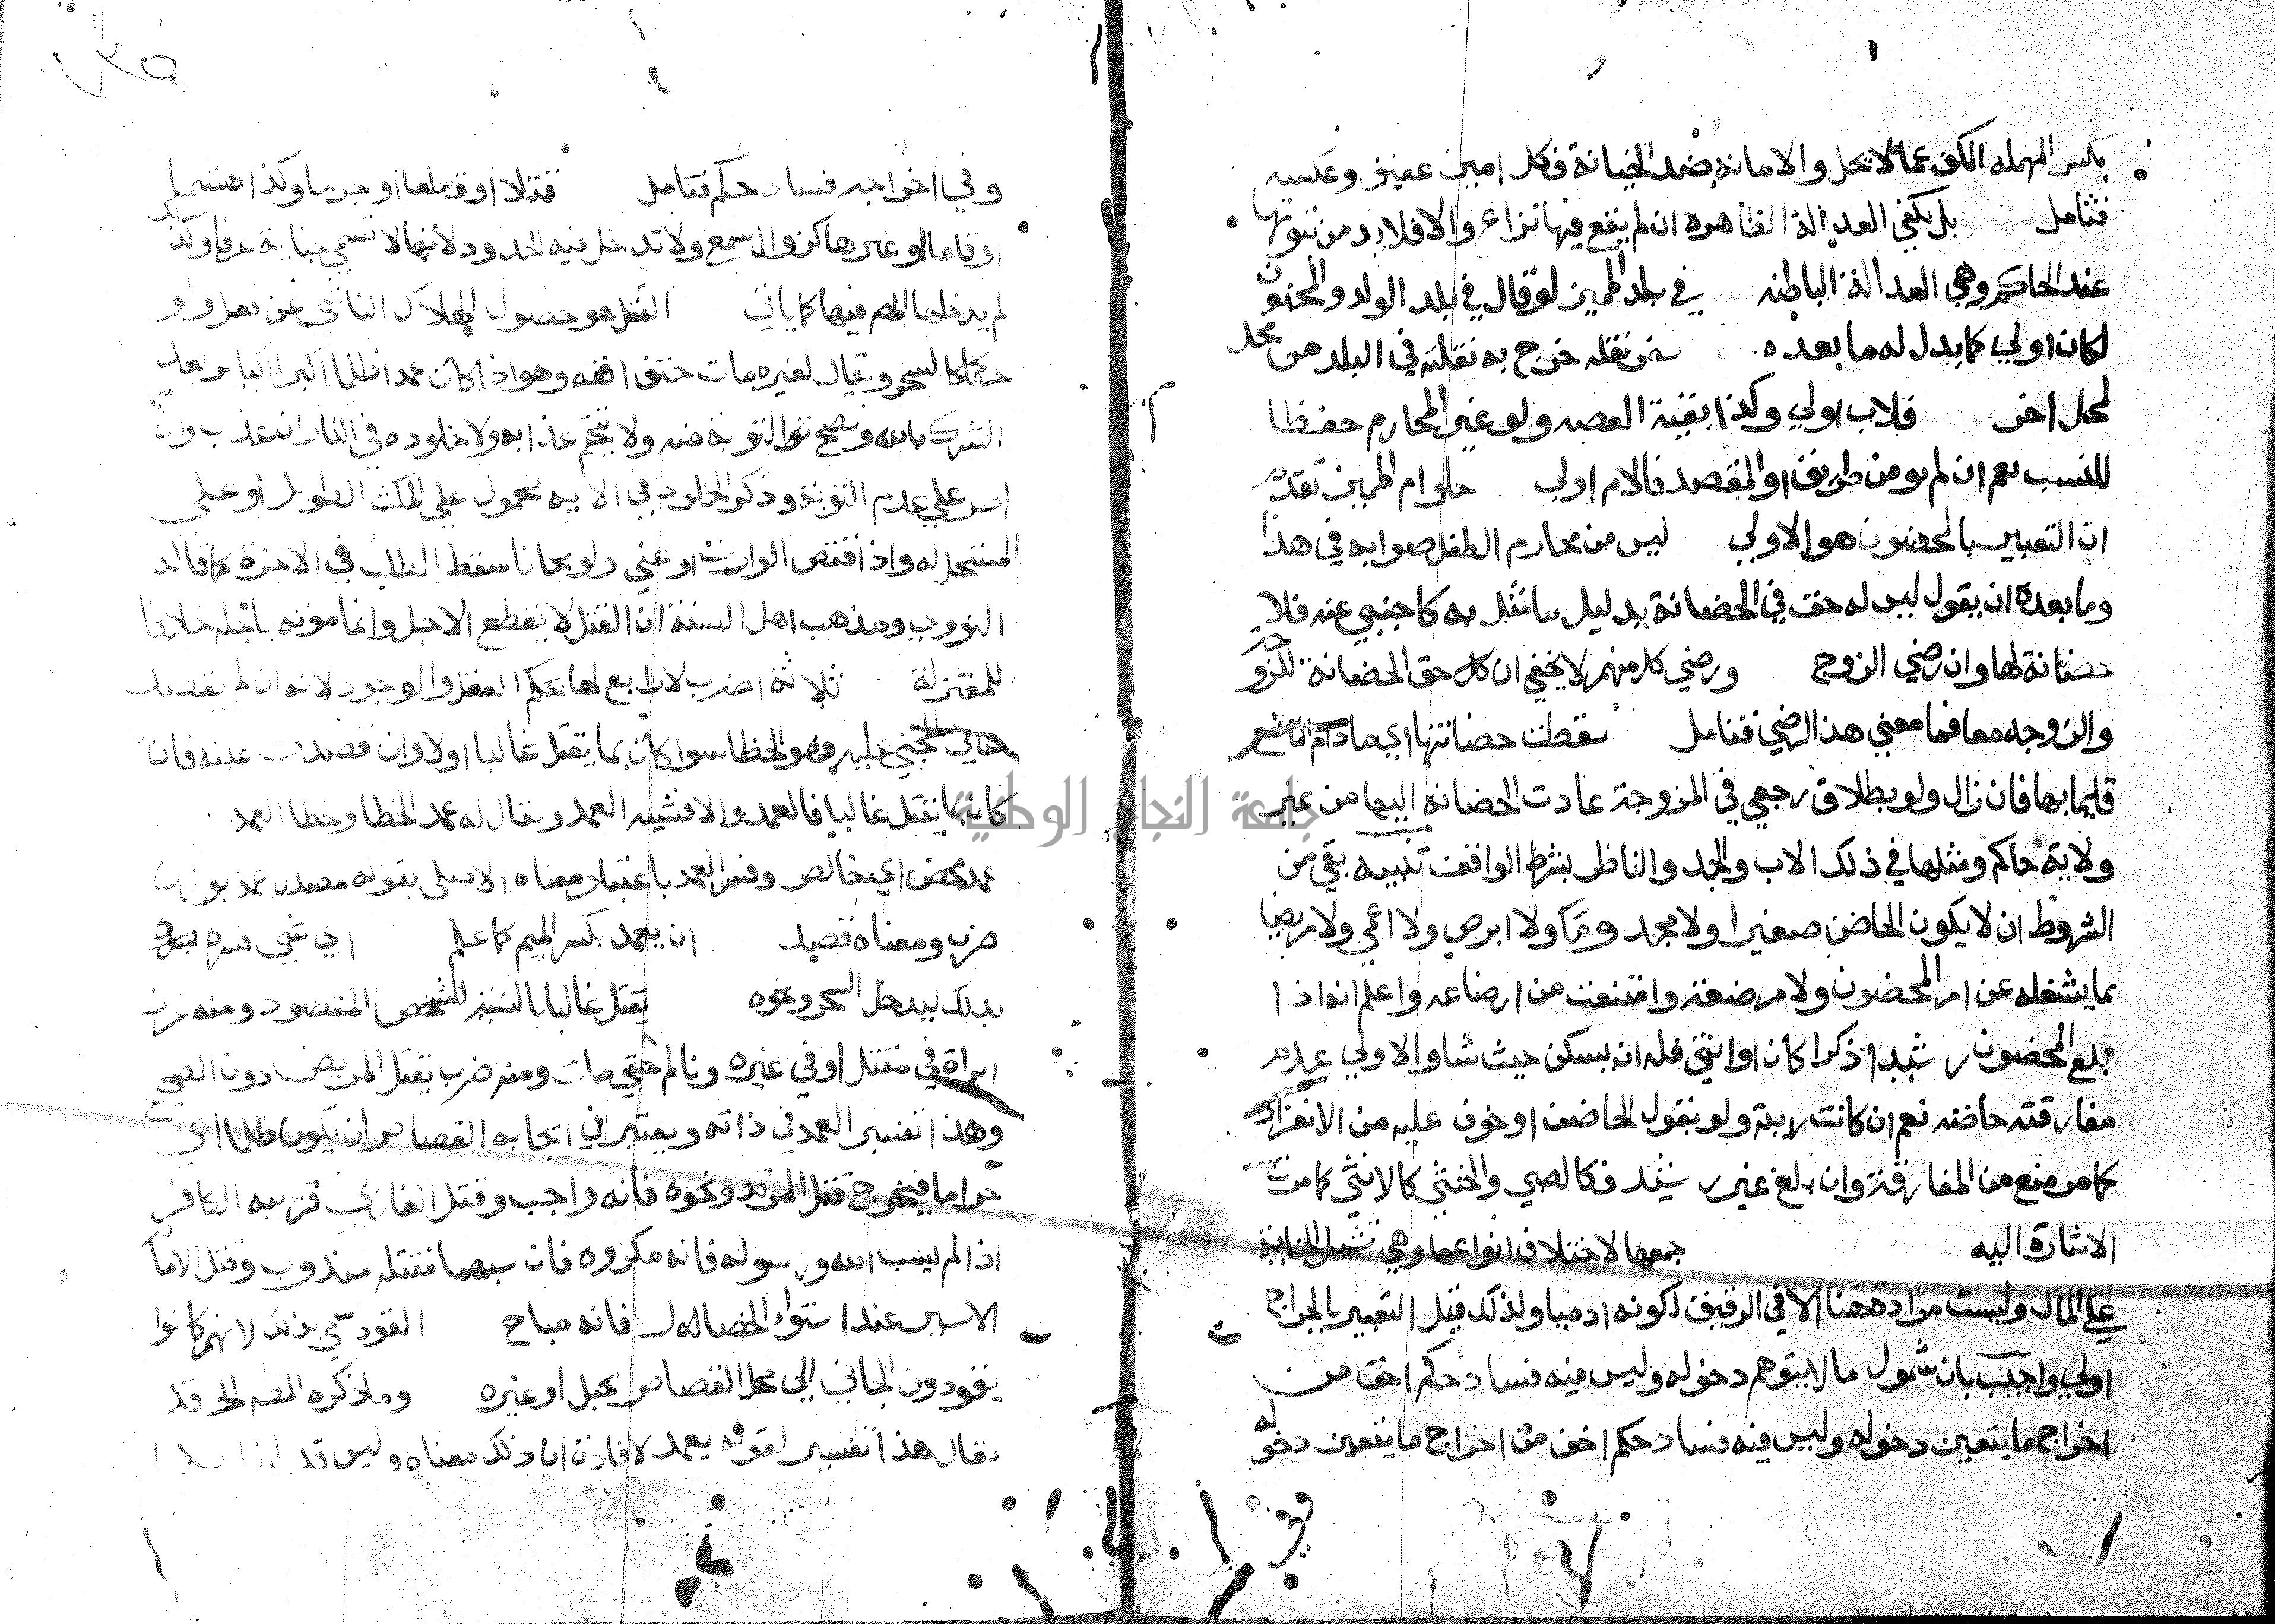 بكسر المهمله الكف عما لا يحل والامانة ضد الخيانة فكل امين عفيف وعكسه
فتامل بل يكفي العدالة الظاهره ان لم يقع فيها نزاع والا فلا بد من ثبوتها
عند الحاكم وهي العدالة الباطنه في بلد المميز لو قال في بلد الولد والمجنون
لكان اولي كما يدل له ما بعده سفر نقله خرج به نقلته في البلد من محل
لمحل اخر فلاب اولي وكذا بقية العصبه ولو غير المحارم حفظا
للنسب نعم ان لم يومن طريق او المقصد فالام اولي حلوا م المميز تقدم
ان التعبير بالمحضون هو الاولي ليس من محارم الطفل صوابه في هذا
وما بعده ان يقول ليس له حق في الحضانة بدليل ما مثل به كاجنبي عنه فلا
حضانة لها وان رضي الزوج ورضي كل منهم لا يخفي ان كل حق الحضانة للزوج
والزوجه معا فما معني هذا الرضي فتامل سقطت حضانتها اي مادام المانع
قايما بها فان زال ولو بطلاق رجعي في المزوجة عادت الحضانه اليها من غير
ولاية حاكم ومثلها في ذلك الاب والجد والناظر بشرط الواقف تنبيه بقي من
الشروط ان لا يكون الحاضن صغيرا ولا مجدوما ولا ابرص ولا اعمي ولا مريضا
بما يشغله عن امر المحضون ولا مرضعة وامتنعت من ارضاعه واعلم انه اذا
بلغ المحضون رشيدا ذكرا كان او انثي فله ان يسكن حيث شا والاولي عدم
مفارقته حاضنه نعم ان كانت ريبة ولو بقول الحاضن او خوف عليه من الانفراد
كامرد منع من المفارقة وان بلغ غير رشيد فكالصبي والخنثي كالانثي كما مرت
الاشارة اليه جمعها لاختلاف انواعها وهي تشمل الجناية
علي المال وليست مرادة هنا الا في الرقيق لكونه ادميا ولذلك قيل التعبير بالجراح
اولي واجيب بان شمول ما لا يتوهم دخوله وليس فيه فساد حكم اخف من
اخراج ما يتعين دخوله وليس فيه فساد حكم اخف من اخراج ما يتعين دخوله
وفي
وفي اخراجه فساد حكم فتامل قتلا او قطعا او جرحا وكذا هشما
او نقاما او غيرها كزوال السمع ولا تدخل فيه الحدود لانها لا تسمي جناية عرفا وكذا
لم يدخلها المص فيها كما ياتي القتل هو حصول الهلاك الناشي عن فعل ولو
حكما كالسحر ويقال لغيره مات حتف انفه وهو اذا كان عمدا ظلما اكبر الكباير بعد
الشرك بالله وتصح التوبة منه ولا يتحتم عذابه ولا خلوده في النار ان عذب وان
اصر علي عدم التوبة وذكر الخلود في الايه محمول علي المكث الطويل او علي
المستحل له واذا اقتص الوارث او عفي ولو مجانا سقط الطلب في الاخرة كما قاله
النووي ومذهب اهل السنة ان القتل لا يقطع الاجل وانما موته باجله خلافا
للمعتزلة ثلاثة اضرب لا رابع لها بحكم العقل والوجود لانه ان لم يقصد
المجني عليه فهو الخطا سوا كان بما يقتل غالبا اولا وان قصدت عينه فان
كان بما يقتل غالبا فالعمد والا فشبه العمد ويقال له عمد الخطا وخطا العمد
عمد محض اي خالص وفسر العمد باعتبار معناه الاصلي بقوله مصدر عمد بوزن
ضرب ومعناه قصد ان يعمد بكسر الميم كما علم اي شي فسره
بذلك ليدخل السحر ونحوه يقتل غالبا بالنسبة للشخص المقصود ومنه غرز
ابراة في مقتل او في غيره وتالم حتي مات ومنه ضرب يقتل المريض دون الصحيح
وهذا تفسير العمد في ذاته ويعتبر في ايجابه القصاص ان يكون ظلما اي
حراما فيخرج قتل المرتد ونحوه فانه واجب وقتل الغازي قريبه الكافر
اذا لم يسب الله ورسوله فانه مكروه فان سبهما فقتله مندوب وقتل الامام
الاسير عند استواء الخصال فانه مباح القود سمي بذلك لانهم كانوا
يقودون الجاني الي محل القصاص بحبل او غيره وما ذكره المص الخ قد
يقال هذا تفسير لقوله يعمد لافادة ان ذلك معناه وليس
جامعة النجاح الوطنية